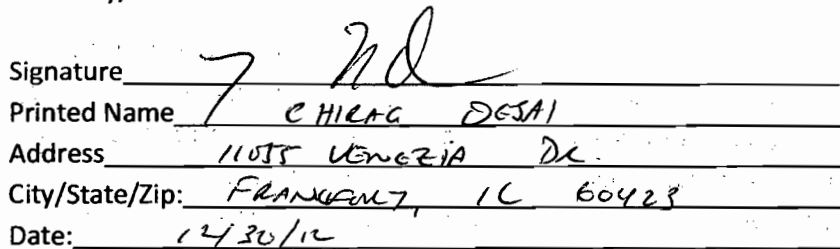 Signature
Printed Name CHIRAG DESAI
Address 11055 VENEZIA DR.
City/State/Zip: FRANKFORT, IL 60423
Date: 12/30/12